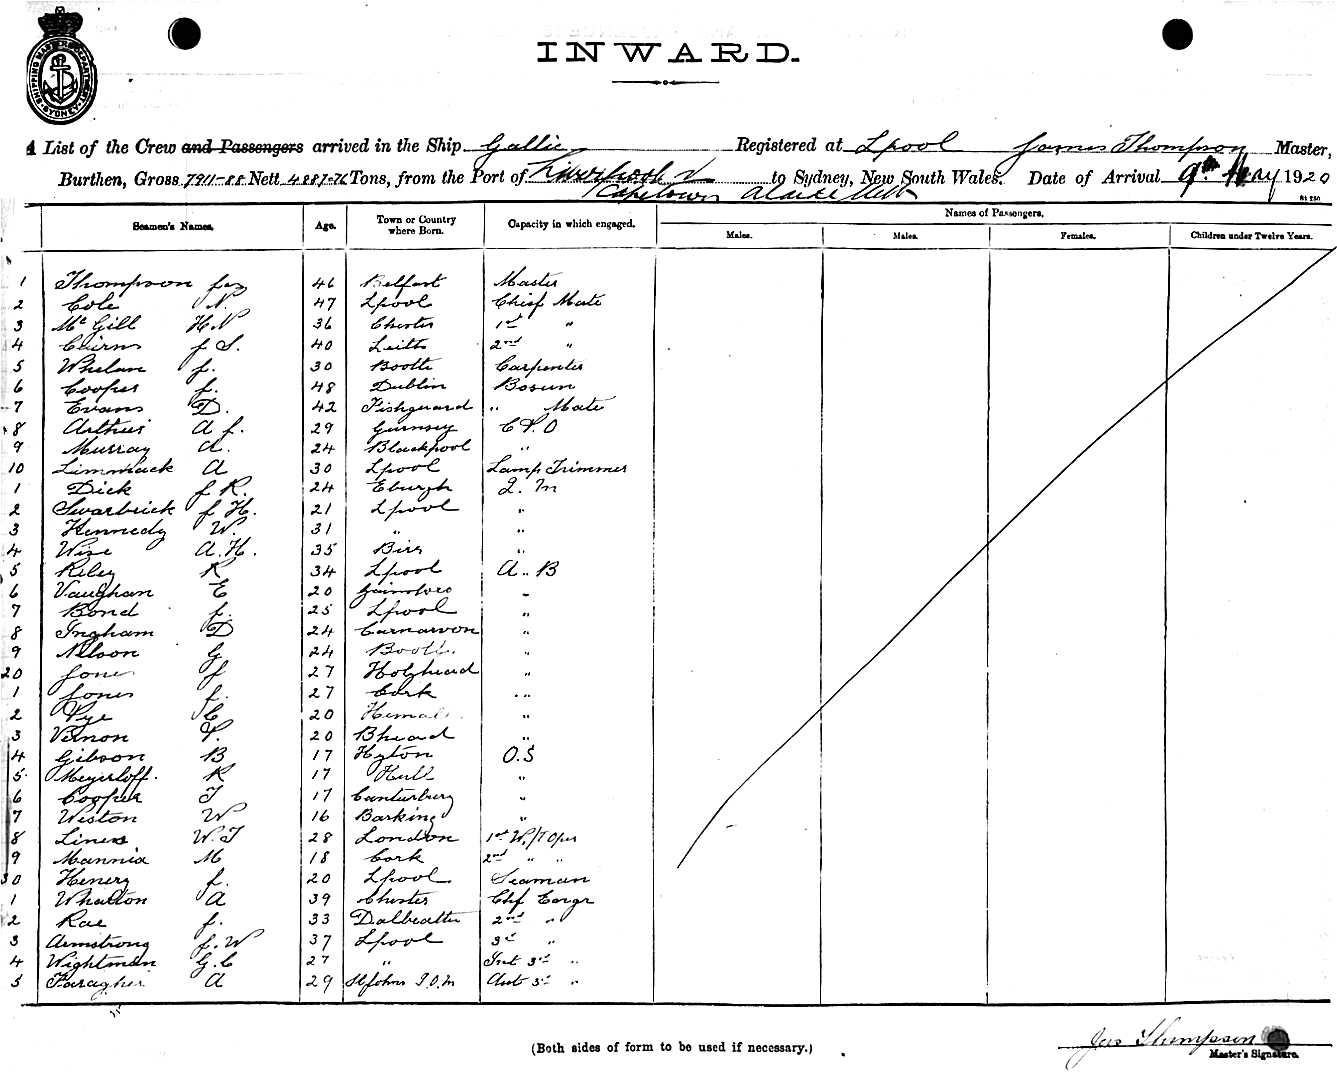 SHIPPING MASTER'S DEPARTMENT SYDNEY
INWARD.
A List of the Crew and Passengers arrived in the Ship Gallic Registered at Lpool James Thompson Master,
Burthen, Gross 7911-88 Nett 4887-76 Tons, from the Port of Liverpool to Sydney, New South Wales. Date of Arrival 9th May 1920
Capetown Adelaide Melb
Seamen's Names. Age. Town or Country where Born. Capacity in which engaged. Names of Passengers.
Males. Males. Females. Children under Twelve Years.
1 Thompson Jas 46 Belfast Master
2 Cole N. 47 Lpool Chief Mate
3 Mc Gill H N 36 Chester 1st "
4 Cairns J S. 40 Leith 2nd "
5 Whelan J. 30 Bootle Carpenter
6 Cooper J. 48 Dublin Bosun
7 Evans D. 42 Fishguard " Mate
8 Arthur A J. 29 Gurnsey
9 Murray A. 24 Blackpool "
10 Limmack A 30 Lpool Lamp Trimmer
1 Dick J R. 24 Eburgh Q. M
2 Swarbrick J H. 21 Lpool "
3 Kennedy W. 31 " "
4 Wise A. H. 35 "
5 Riley R 34 Lpool A.. B
6 Vaughan E 20 "
7 Bond J. 25 Lpool "
8 Ingham D 24 Carnarvon "
9 Nelson G 24 Bootle "
20 Jones J 27 Holyhead "
1 Jones J. 27 Cork "
2 Pye C 20 "
3 Vernon T. 20 Bhead "
4 Gibson B 17 Hyton O.S
5 Meyerloff. R 17 Hull "
6 Cooper T 17 Canterbury "
7 Weston W 16 Barking "
8 Lines W. T 28 London 1st W/T Oper
9 Mannix M 18 Cork 2nd " "
30 Henery J. 20 Lpool Seaman
1 Whalton A 39 Chester Chf Eengr
2 Rae J. 33 Dalbeattie 2nd "
3 Armstrong J. W 37 Lpool 3rd "
4 Wightman G. C 27 " Int 3rd "
5 Faragher A 29 St Johns I.O.M Asst 3rd "
(Both sides of form to be used if necessary.)
Jas Thompson
Master's Signature.